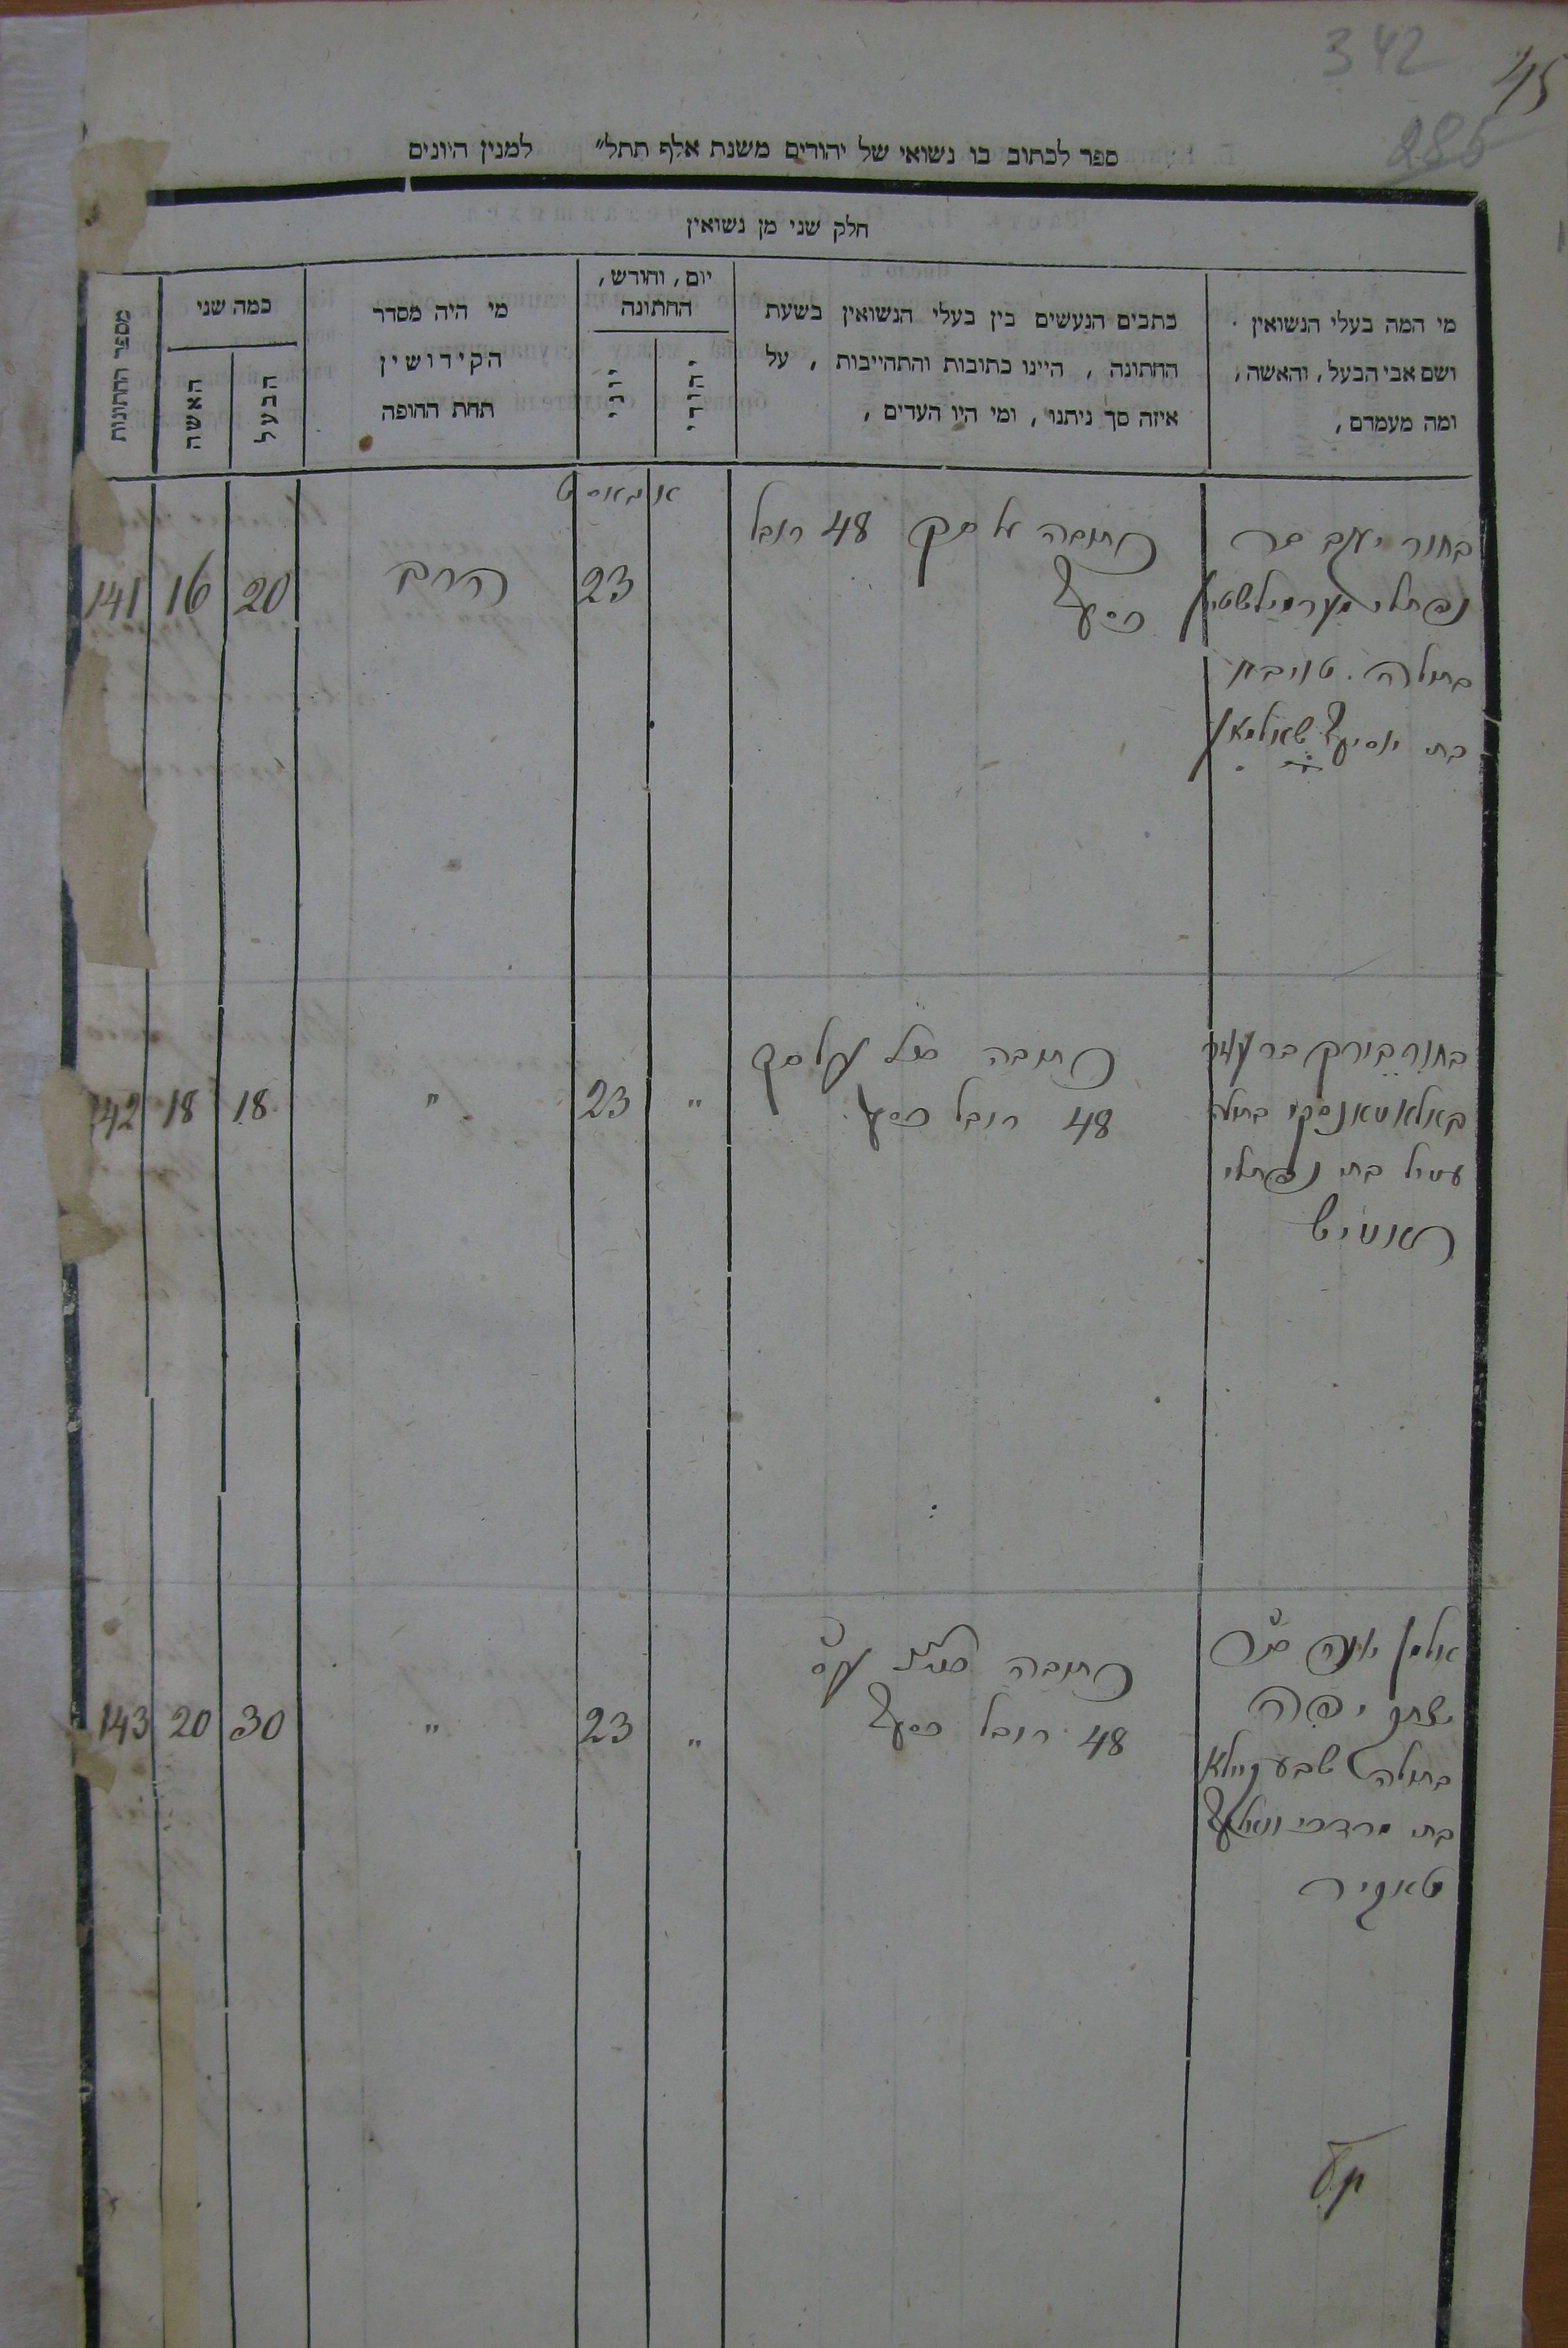 342
45
285
ספר לכתוב בו נשואי של יהודים משנת אלף תתל״ למנין היונים
חלק שני מן נשואין
מי המה בעלי הנשואין
ושם אבי הבעל, והאשה,
ומה מעמדם,
כתבים הנעשים בין בעלי הנשואין בשעת
החתונה, היינו כתובות והתחייבות, על
איזה סך ניתנו, ומי היו העדים,
יום, וחודש,
החתונה
יהודי
יוני
מי היה מסדר
הקידושין
תחת החופה
כמה שני
הבעל
האשה
מספר החתונות
בחור יעקב בר
נפתלי
בתולה טויבא
בת יוסיף
כתובה על סך 48 רובל
כסף
אויגוסט
23
הרב
20
16
141
בחור בורך בר
בתולה
עטיל בת נפתלי
כתובה על סך
48 רובל כסף
"
23
"
18
18
142
אלמן יונה בר
יצחק יפה
בתולה שבע
בת מרדכי וואלף
כתובה
48 רובל כסף
"
23
"
30
20
143